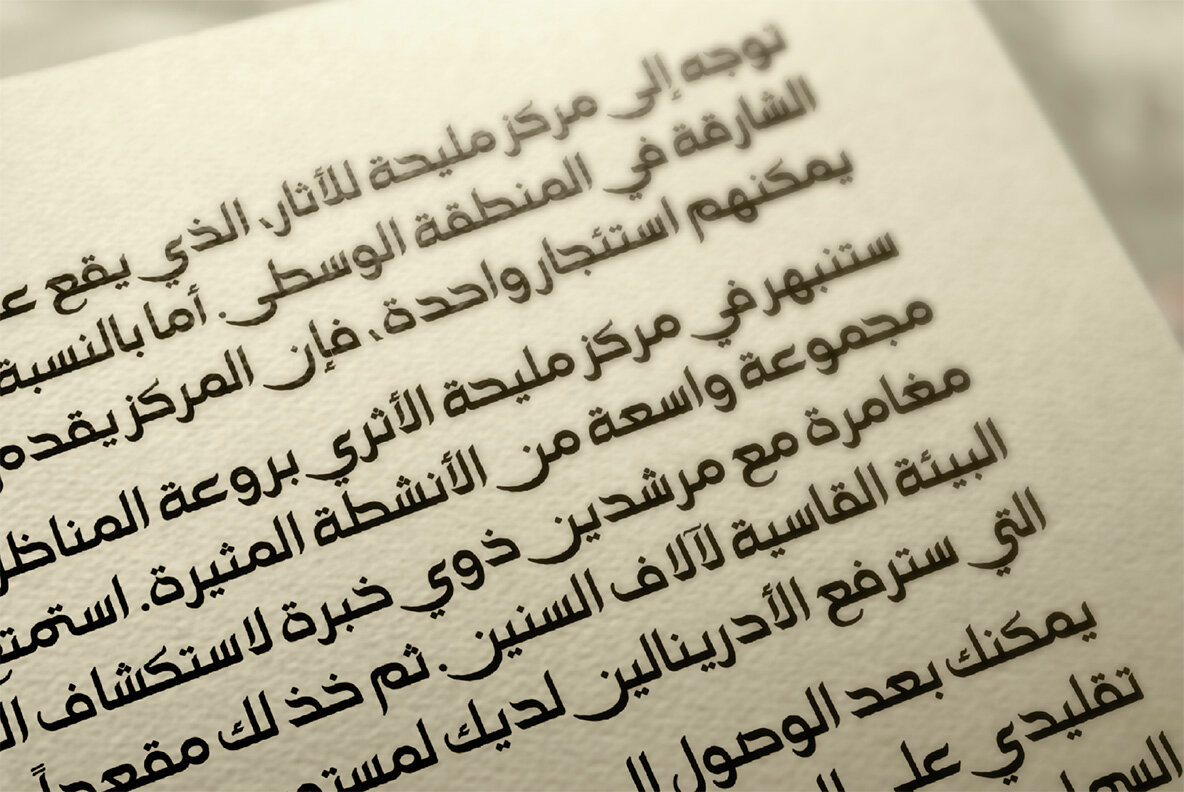 توجه إلى مركز مليحة للأثار، الذي يقع
الشارقة في المنطقة الوسطى. أما بالنسبة
يمكنهم استئجار واحدة، فإن المركز يقدم
ستنبهر في مركز مليحة الأثري بروعة المناظر
مجموعة واسعة من الأنشطة المثيرة. استمتع
مغامرة مع مرشدين ذوي خبرة لاستكشاف
البيئة القاسية لآلاف السنين. ثم خذ لك مقعداً
التي سترفع الأدرينالين لديك
يمكنك بعد الوصول
تقليدي على